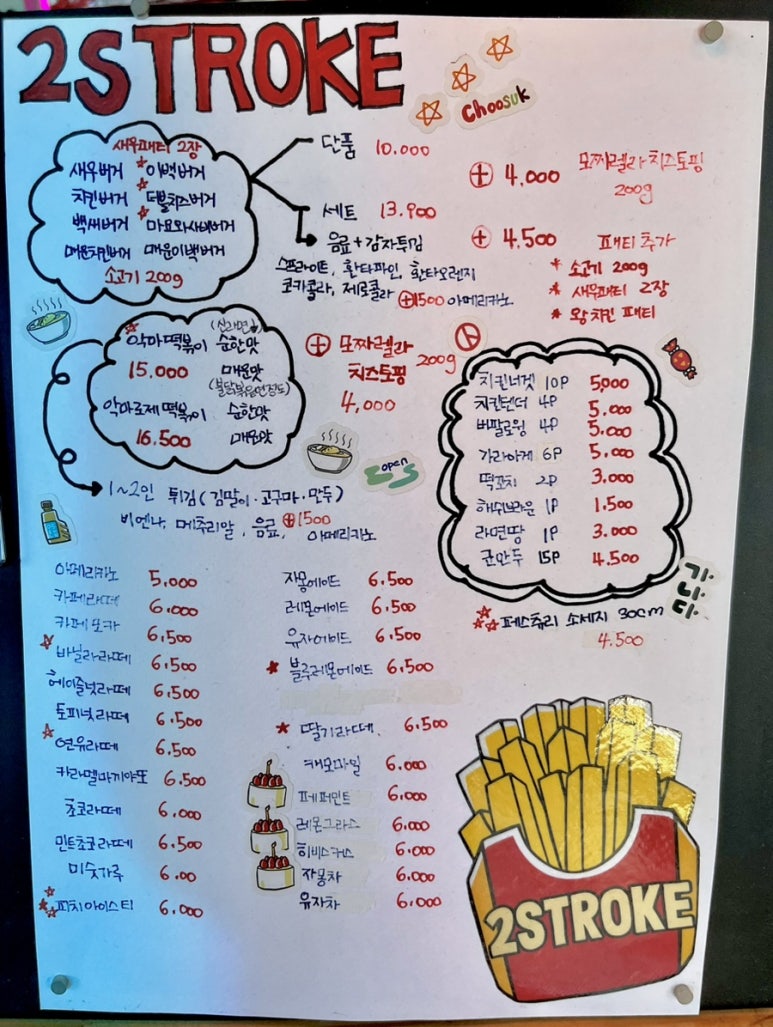 2STROKE
Choosuk
새우패티 2장
새우버거 이백버거
치킨버거 더블치즈버거
백새버거 마요와사비버거
매운치킨버거 매운이백버거
소고기 200g
단품 10.000
세트 13.900
음료+감자튀김
스프라이트, 환타파인, 환타오렌지
코카콜라, 제로콜라 +1500 아메리카노
+ 4,000 모짜렐라 치즈토핑
200g
+ 4.500 패티 추가
* 소고기 200g
* 새우패티 2장
* 왕치킨 패티
(신라면)
악마떡볶이 순한맛
15.000 매운맛
(불닭볶음면정도)
악마로제 떡볶이 순한맛
16.500 매운맛
+ 모짜렐라 200g
치즈토핑
4,000
open
1~2인 튀김(김말이·고구마·만두)
비엔나, 메추리알, 음료, +1500 아메리카노
치킨너겟 10P 5,000
치킨텐더 4P 5.000
버팔로윙 4P 5.000
가라아게 6P 5.000
떡꼬치 2P 3.000
해쉬브라운 1P 1.500
라면땅 1P 3.000
군만두 15P 4.500
가
나
다
페스츄리 소세지 30cm
4.500
아메리카노 5.000
카페라떼 6.000
카페모카 6,500
바닐라라떼 6,500
헤이즐넛라떼 6,500
토피넛라떼 6,500
연유라떼 6,500
카라멜마끼야또 6,500
초코라떼 6,000
민트초코라떼 6,500
미숫가루 6.00
피치아이스티 6,000
자몽에이드 6.500
레몬에이드 6.500
유자에이드 6.500
* 블루레몬에이드 6.500
* 딸기라떼. 6,500
캐모마일 6.000
페퍼민트 6,000
레몬그라스 6,000
히비스커스 6.000
자몽차 6.000
유자차 6.000
2STROKE